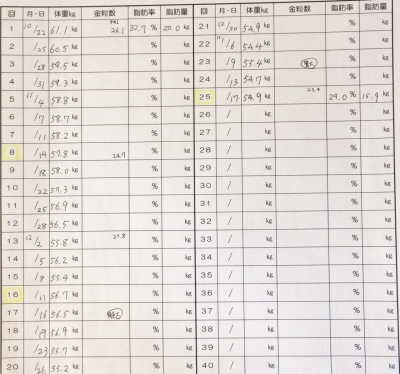 回 月・日 体重kg 金粒数 脂肪率 脂肪量
1 10/22 61.1 kg 26.1 32.7 % 20.0 kg
2 /25 60.5 kg % kg
3 /28 59.5 kg % kg
4 /31 59.3 kg % kg
5 11/4 58.8 kg % kg
6 /7 58.7 kg % kg
7 /11 58.2 kg % kg
8 /14 57.8 kg 24.7 % kg
9 /18 58.0 kg % kg
10 /22 57.3 kg % kg
11 /25 56.9 kg % kg
12 /28 56.5 kg % kg
13 12/2 55.8 kg 23.8 % kg
14 /5 56.2 kg % kg
15 /8 55.4 kg % kg
16 /11 56.7 kg % kg
17 /16 56.5 kg % kg
18 /19 56.9 kg % kg
19 /23 55.7 kg % kg
20 /26 55.2 kg % kg
回 月・日 体重kg 金粒数 脂肪率 脂肪量
21 12/30 54.9 kg % kg
22 1/6 54.4 kg % kg
23 /9 55.4 kg % kg
24 /13 54.7 kg % kg
25 /17 54.9 kg 23.4 29.0 % 15.9 kg
26 / kg % kg
27 / kg % kg
28 / kg % kg
29 / kg % kg
30 / kg % kg
31 / kg % kg
32 / kg % kg
33 / kg % kg
34 / kg % kg
35 / kg % kg
36 / kg % kg
37 / kg % kg
38 / kg % kg
39 / kg % kg
40 / kg % kg